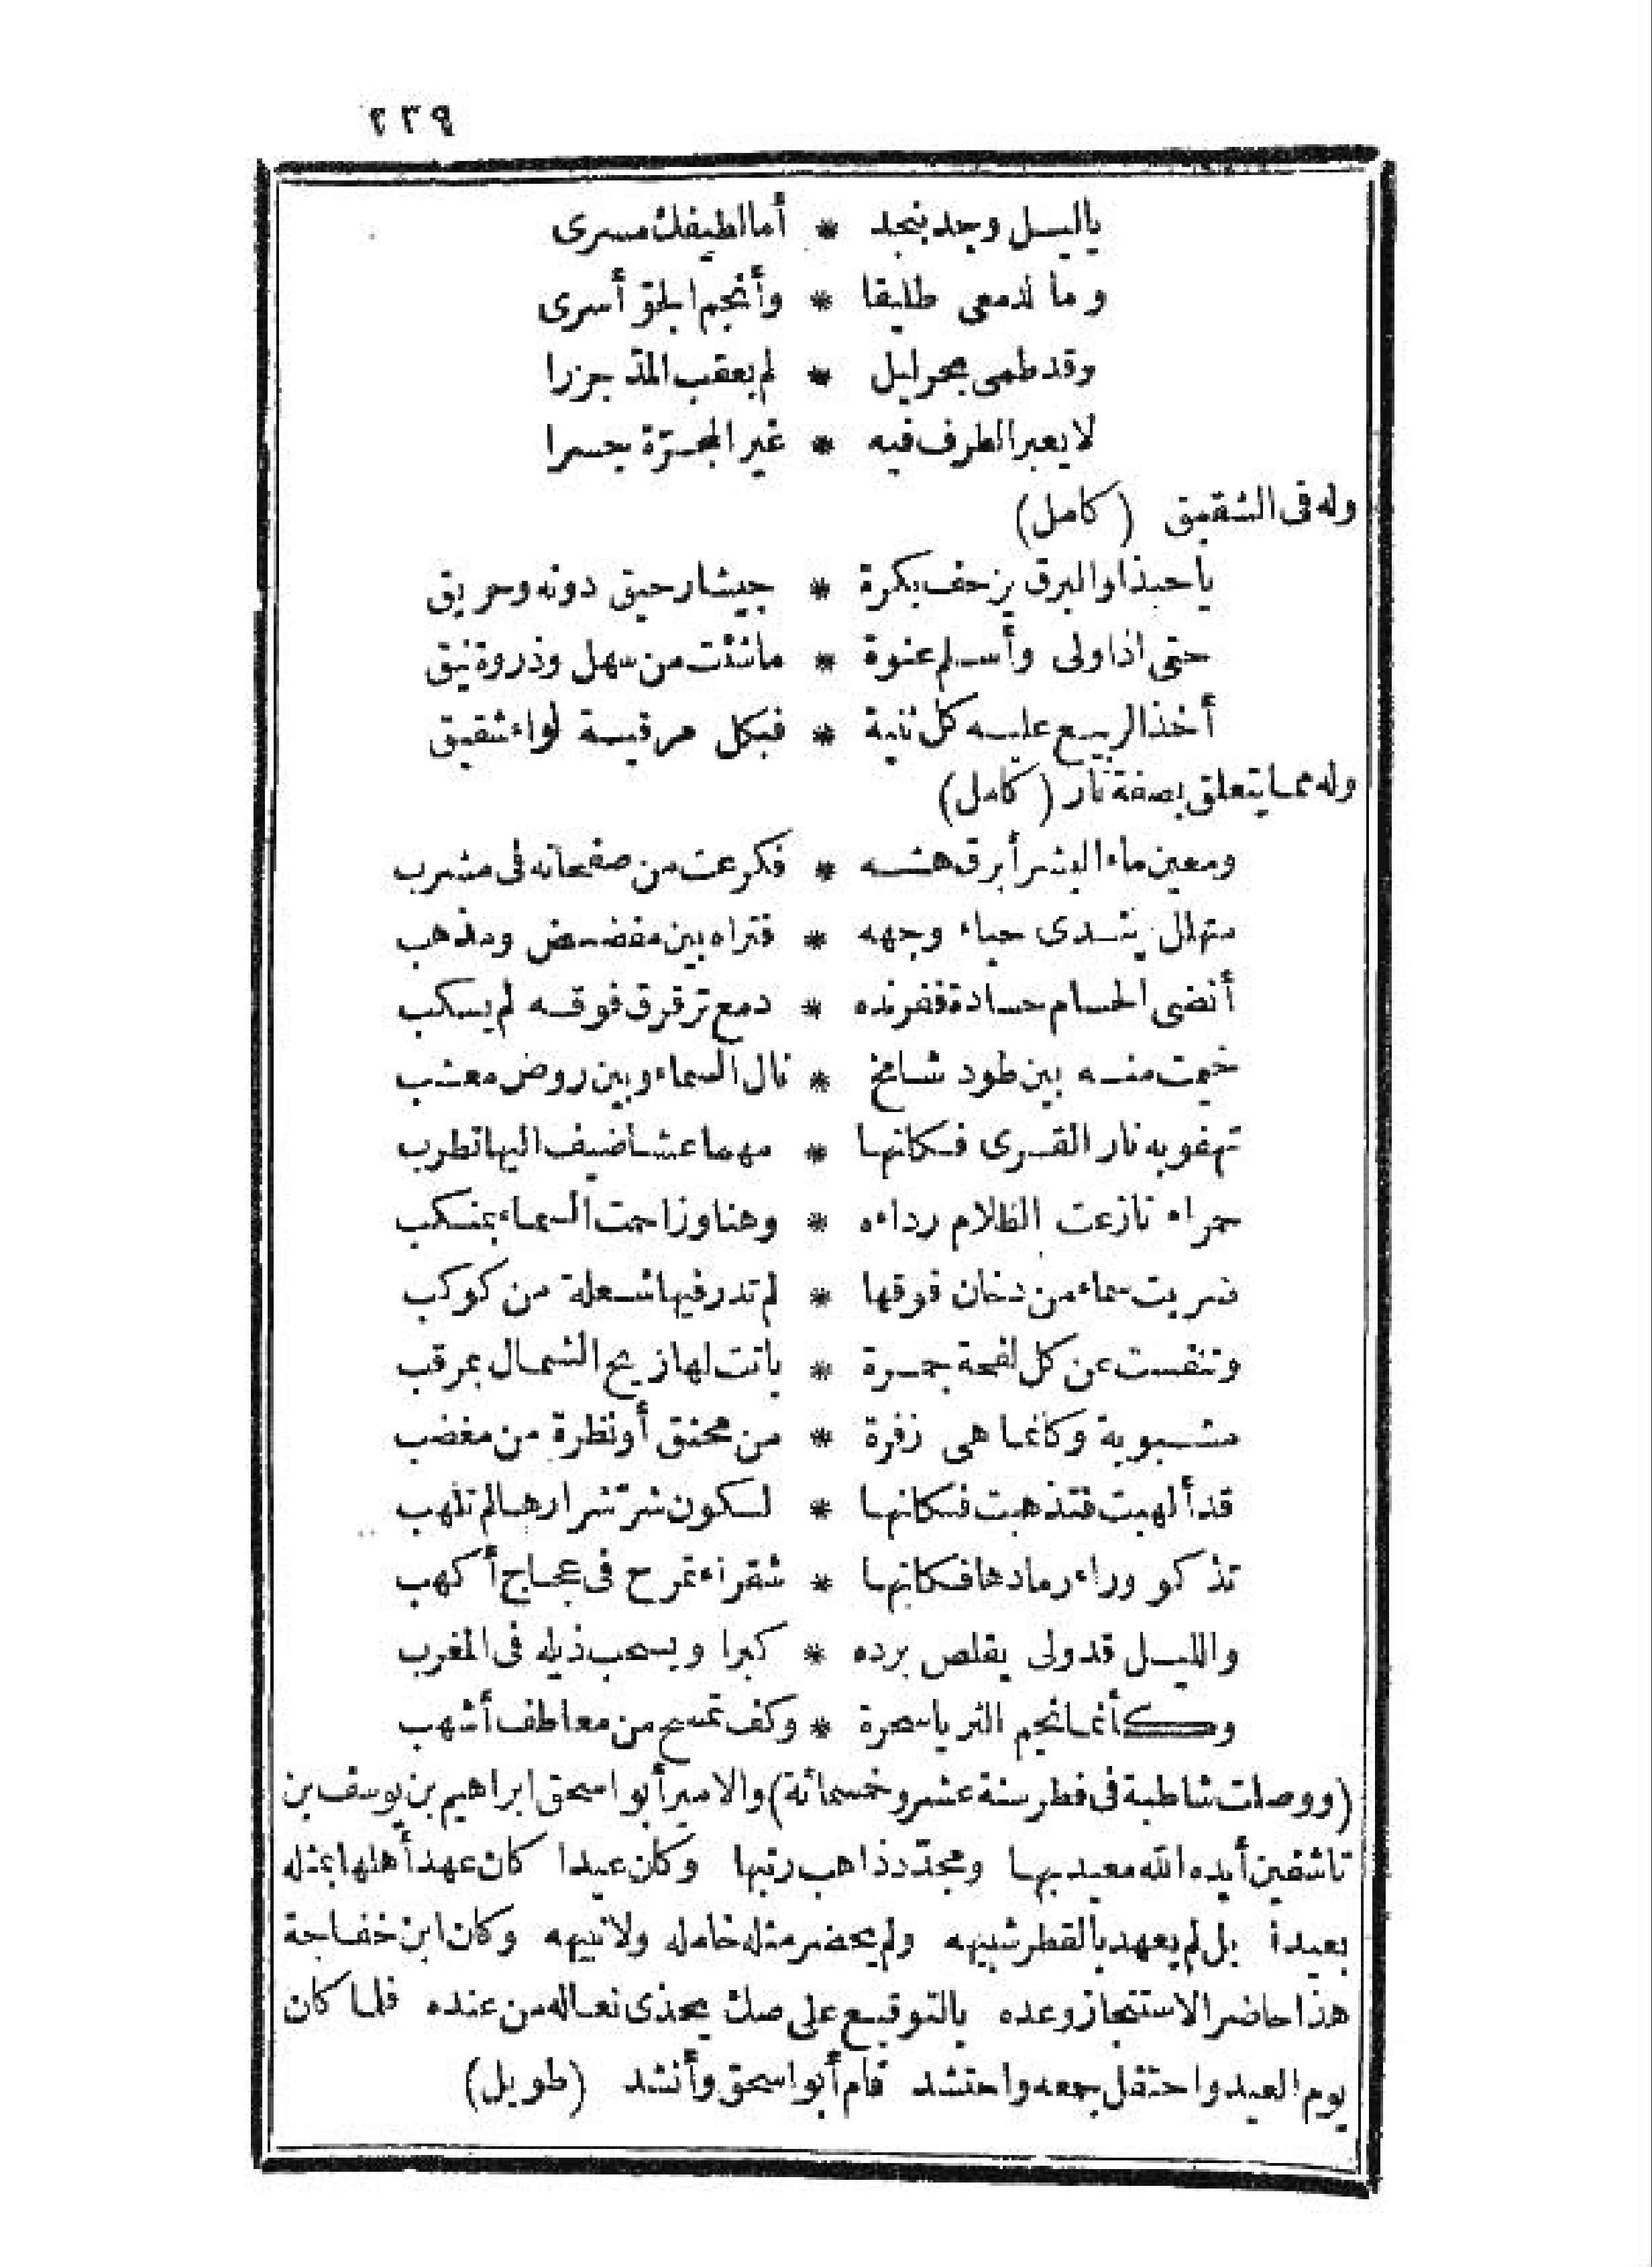 ٢٣٩
ياليل وجد بنجد * أما لطيفك مسرى
وما لدمعى طليقا * وأنجم الجلو أسرى
وقد طمى بحر ليل * لم يعقب المدّ جزرا
لا يعبر الطرف فيه * غير المجرّة جسرا
وله فى الشقيق (كامل)
يا حبذا والبرق يزحف بكرة * جيشا رحيق دونه وحريق
حتى اذا ولى وأسلم عنوة * ما شئت من سهل وذروة نيق
أخذ الربيع عليه كل ثنية * فبكل مرقبة لواء شقيق
وله مما يتعلق بصفة نار (كامل)
ومعين ماء البشر أبرق هشه * فكرعت من صفحاته فى مشرب
متهلل يندى حياء وجهه * فتراه بين مفضض ومذهب
أنضى الحسام حسادة ففرنده * دمع ترقرق فوقه لم يسكب
خيمت منه بين طود شامخ * نال السماء وبين روض معشب
تهفو به نار القرى فكانها * مهما عشا ضيف اليها تطرب
حمراء نازعت الظلام رداءه * وهنا وزاحمت السماء بمنكب
ضربت سماء من دخان فوقها * لم تدر فيها شعلة من كوكب
وتنفست عن كل لفحة جمرة * باتت لها ريح الشمال بمرقب
مشبوبة وكأنما هى زفرة * من محنق أو نظرة من مغضب
قد ألهبت فتذهبت فكانها * لسكون شرّ شرارها لم تلهب
تذكو وراء رمادها فكانها * شقراء تمرح فى عجاج أكهب
والليل قد ولى يقلص برده * كبرا ويسحب ذيله فى المغرب
وكأنما نجم الثريا سحرة * وكف تمسح من معاطف أشهب
(ووصلت شاطبة فى فطر سنة عشر وخمسمائة) والامير أبو اسحق ابراهيم بن يوسف بن
تاشفين أيده الله معيد بها ومجدّد ذاهب رتبها وكان عيدا كان عهد أهلها بمثله
بعيدا بل لم يعهد بالقطر شبيهه ولم يحضر مثله خامله ولا نبيهه وكان ابن خفاجة
هذا حاضر الاستنجاز وعده بالتوقيع على صك يحذى نعاله من عنده فلما كان
يوم العيد واحتفل جمعه واحتشد قام أبو اسحق وأنشد (طويل)